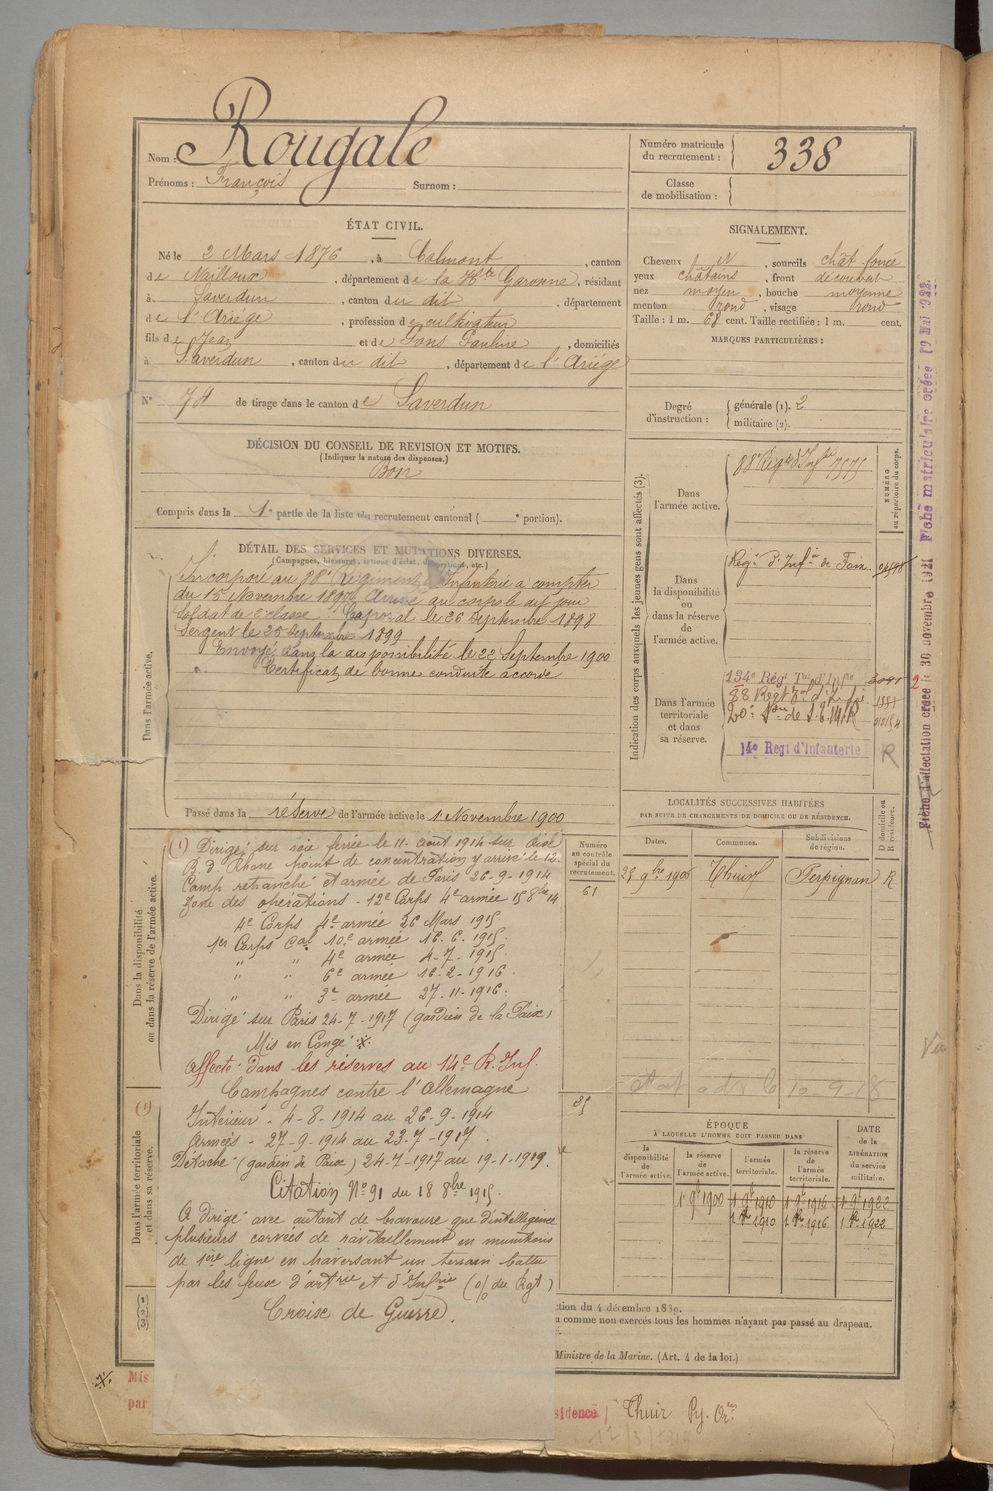 Nom : Rougale
Prénoms : François Surnom :
Numéro matricule du recrutement : 338
Classe de mobilisation :
ÉTAT CIVIL.
Né le 2 Mars 1876, à Calmont, canton
de Nailloux, département de la Hte Garonne, résidant
à Saverdun, canton du dit, département
de l'Ariège, profession de cultivateur
fils de Jean et de Pons Pauline, domiciliés
à Saverdun, canton du dit, département de l'Ariège
N° 74 de tirage dans le canton de Saverdun
SIGNALEMENT.
Cheveux N, sourcils chât foncé
yeux châtains, front découvert
nez moyen, bouche moyenne
menton rond, visage rond
Taille : 1 m. 68 cent. Taille rectifiée : 1 m. cent.
MARQUES PARTICULIÈRES :
Degré d'instruction : générale (1). 2
militaire (2).
DÉCISION DU CONSEIL DE REVISION ET MOTIFS.
(Indiquer la nature des dispenses.)
Bon
Compris dans la 1e partie de la liste du recrutement cantonal ( e portion).
DÉTAIL DES SERVICES ET MUTATIONS DIVERSES.
(Campagnes, blessures, actions d'éclat, décorations, etc.)
Dans l'armée active.
Incorporé au 88e Régiment d'Infanterie à compter
du 15 Novembre 1897 Arrivé au corps le dit jour
Soldat de 2e classe. Caporal le 26 Septembre 1898
Sergent le 25 Septembre 1899
Envoyé dans la disponibilité le 22 Septembre 1900
Certificat de bonne conduite accordé
Passé dans la réserve de l'armée active le 1 Novembre 1900
Indication des corps auxquels les jeunes gens sont affectés (3).
NUMÉRO au répertoire du corps.
Dans l'armée active.
88e Régt d'Infie 7575
Dans la disponibilité ou dans la réserve de l'armée active.
Régt d'Infie de Foix
Dans l'armée territoriale et dans sa réserve.
134e Régt Tal d'Infie
88 Régt Tal d'Infie
14e Regt d'Infanterie R
LOCALITÉS SUCCESSIVES HABITÉES
PAR SUITE DE CHANGEMENTS DE DOMICILE OU DE RÉSIDENCE.
Dates. Communes. Subdivisions de région. D domicile ou R résidence.
25 9bre 1906 Thuir Perpignan R
Numéro au contrôle spécial du recrutement.
61
85
Dans la disponibilité ou dans la réserve de l'armée active.
(1) Dirigé sur voie ferrée le 11 août 1914 sur
B. d Rhône point de concentration y arrivé le 12.
Camp retranché et armée de Paris 26-9-1914
Zone des opérations - 12e Corps 4e armée 15 8bre 14
4e Corps 4e armée 26 Mars 1915
1er Corps Cal 10e armée 16. 6. 1915.
" " 4e armée 4-7-1915
" " 6e armée 16-2-1916.
" " 3e armée 27-11-1916.
Dirigé sur Paris 24-7-1917 (gardien de la Paix)
Mis en Congé ※
Affecté dans les réserves au 14e R. Inf.
Campagnes contre l'Allemagne
Intérieur - 4-8-1914 au 26-9-1914
Armées - 27-9-1914 au 23-7-1917.
Détaché (gardien de Paix) 24-7-1917 au 19-1-1919.
Citation N° 91 du 18 8bre 1915.
A dirigé avec autant de bravoure que d'intelligence
plusieurs corvées de ravitaillement en munitions
de 1ère ligne en traversant un terrain battu
par les feux d'artrie et d'Infrie (o/ du Rgt)
Croix de Guerre.
(1)
Dans l'armée territoriale et dans sa réserve.
1 2 3
ÉPOQUE
À LAQUELLE L'HOMME DOIT PASSER DANS
la disponibilité de l'armée active. la réserve de l'armée active. l'armée territoriale. la réserve de l'armée territoriale.
DATE de la LIBÉRATION du service militaire.
1 9e 1900 1 9e 1910 1 9e 1916 1 9e 1922
1 1910 1 1916 1 1922
ction du 4 décembre 1889.
a comme non exercés tous les hommes n'ayant pas passé au drapeau.
Ministre de la Marine. (Art. 4 de la loi.)
※ Mis
par
sidence Thuir Py. Ores
12/3/1919
Fiche d'affectation créée le 30 novembre 1921 Fiche matriculaire créée 19 Mai 1922.
2
Vu